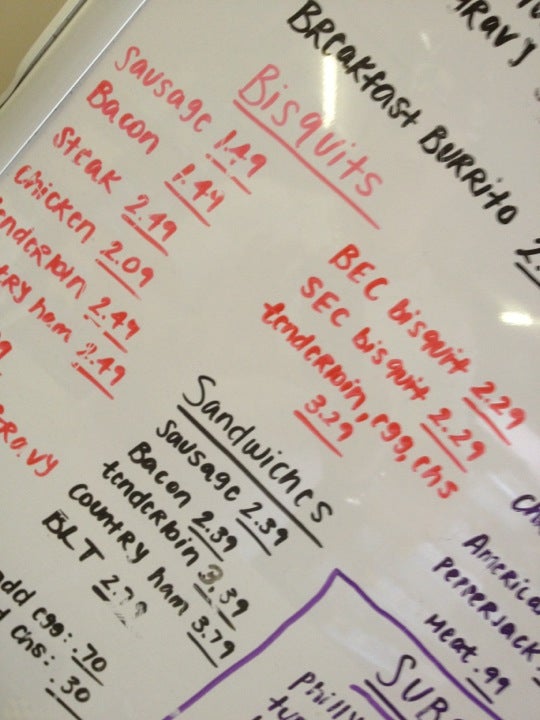 Gravy
Breakfast Burrito 2.
Bisquits
Sausage 1.49
Bacon 1.44
Steak 2.49
Chicken 2.09
enderloin 2.49
try ham 2.49
BEC bisquit 2.29
SEC bisquit 2.29
tenderloin, egg, chs
3.29
Gravy
Sandwiches
Sausage 2.39
Bacon 2.39
tenderloin 3.39
Country ham 3.79
BLT 2.79
add egg: .70
chs: .30
America
Pepperjack
Meat .99
SUB
philly